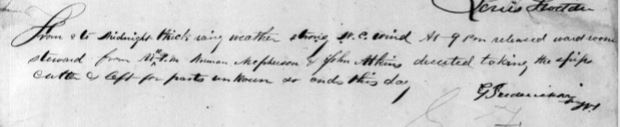 Louis Stodder
From 8 to Midnight thick rainy weather strong N.E. wind At 9 P.m released ward room
steward from
Anman McPherson & John Atkins deserted taking the ships
Cutter & left for parts unknown so ends this day